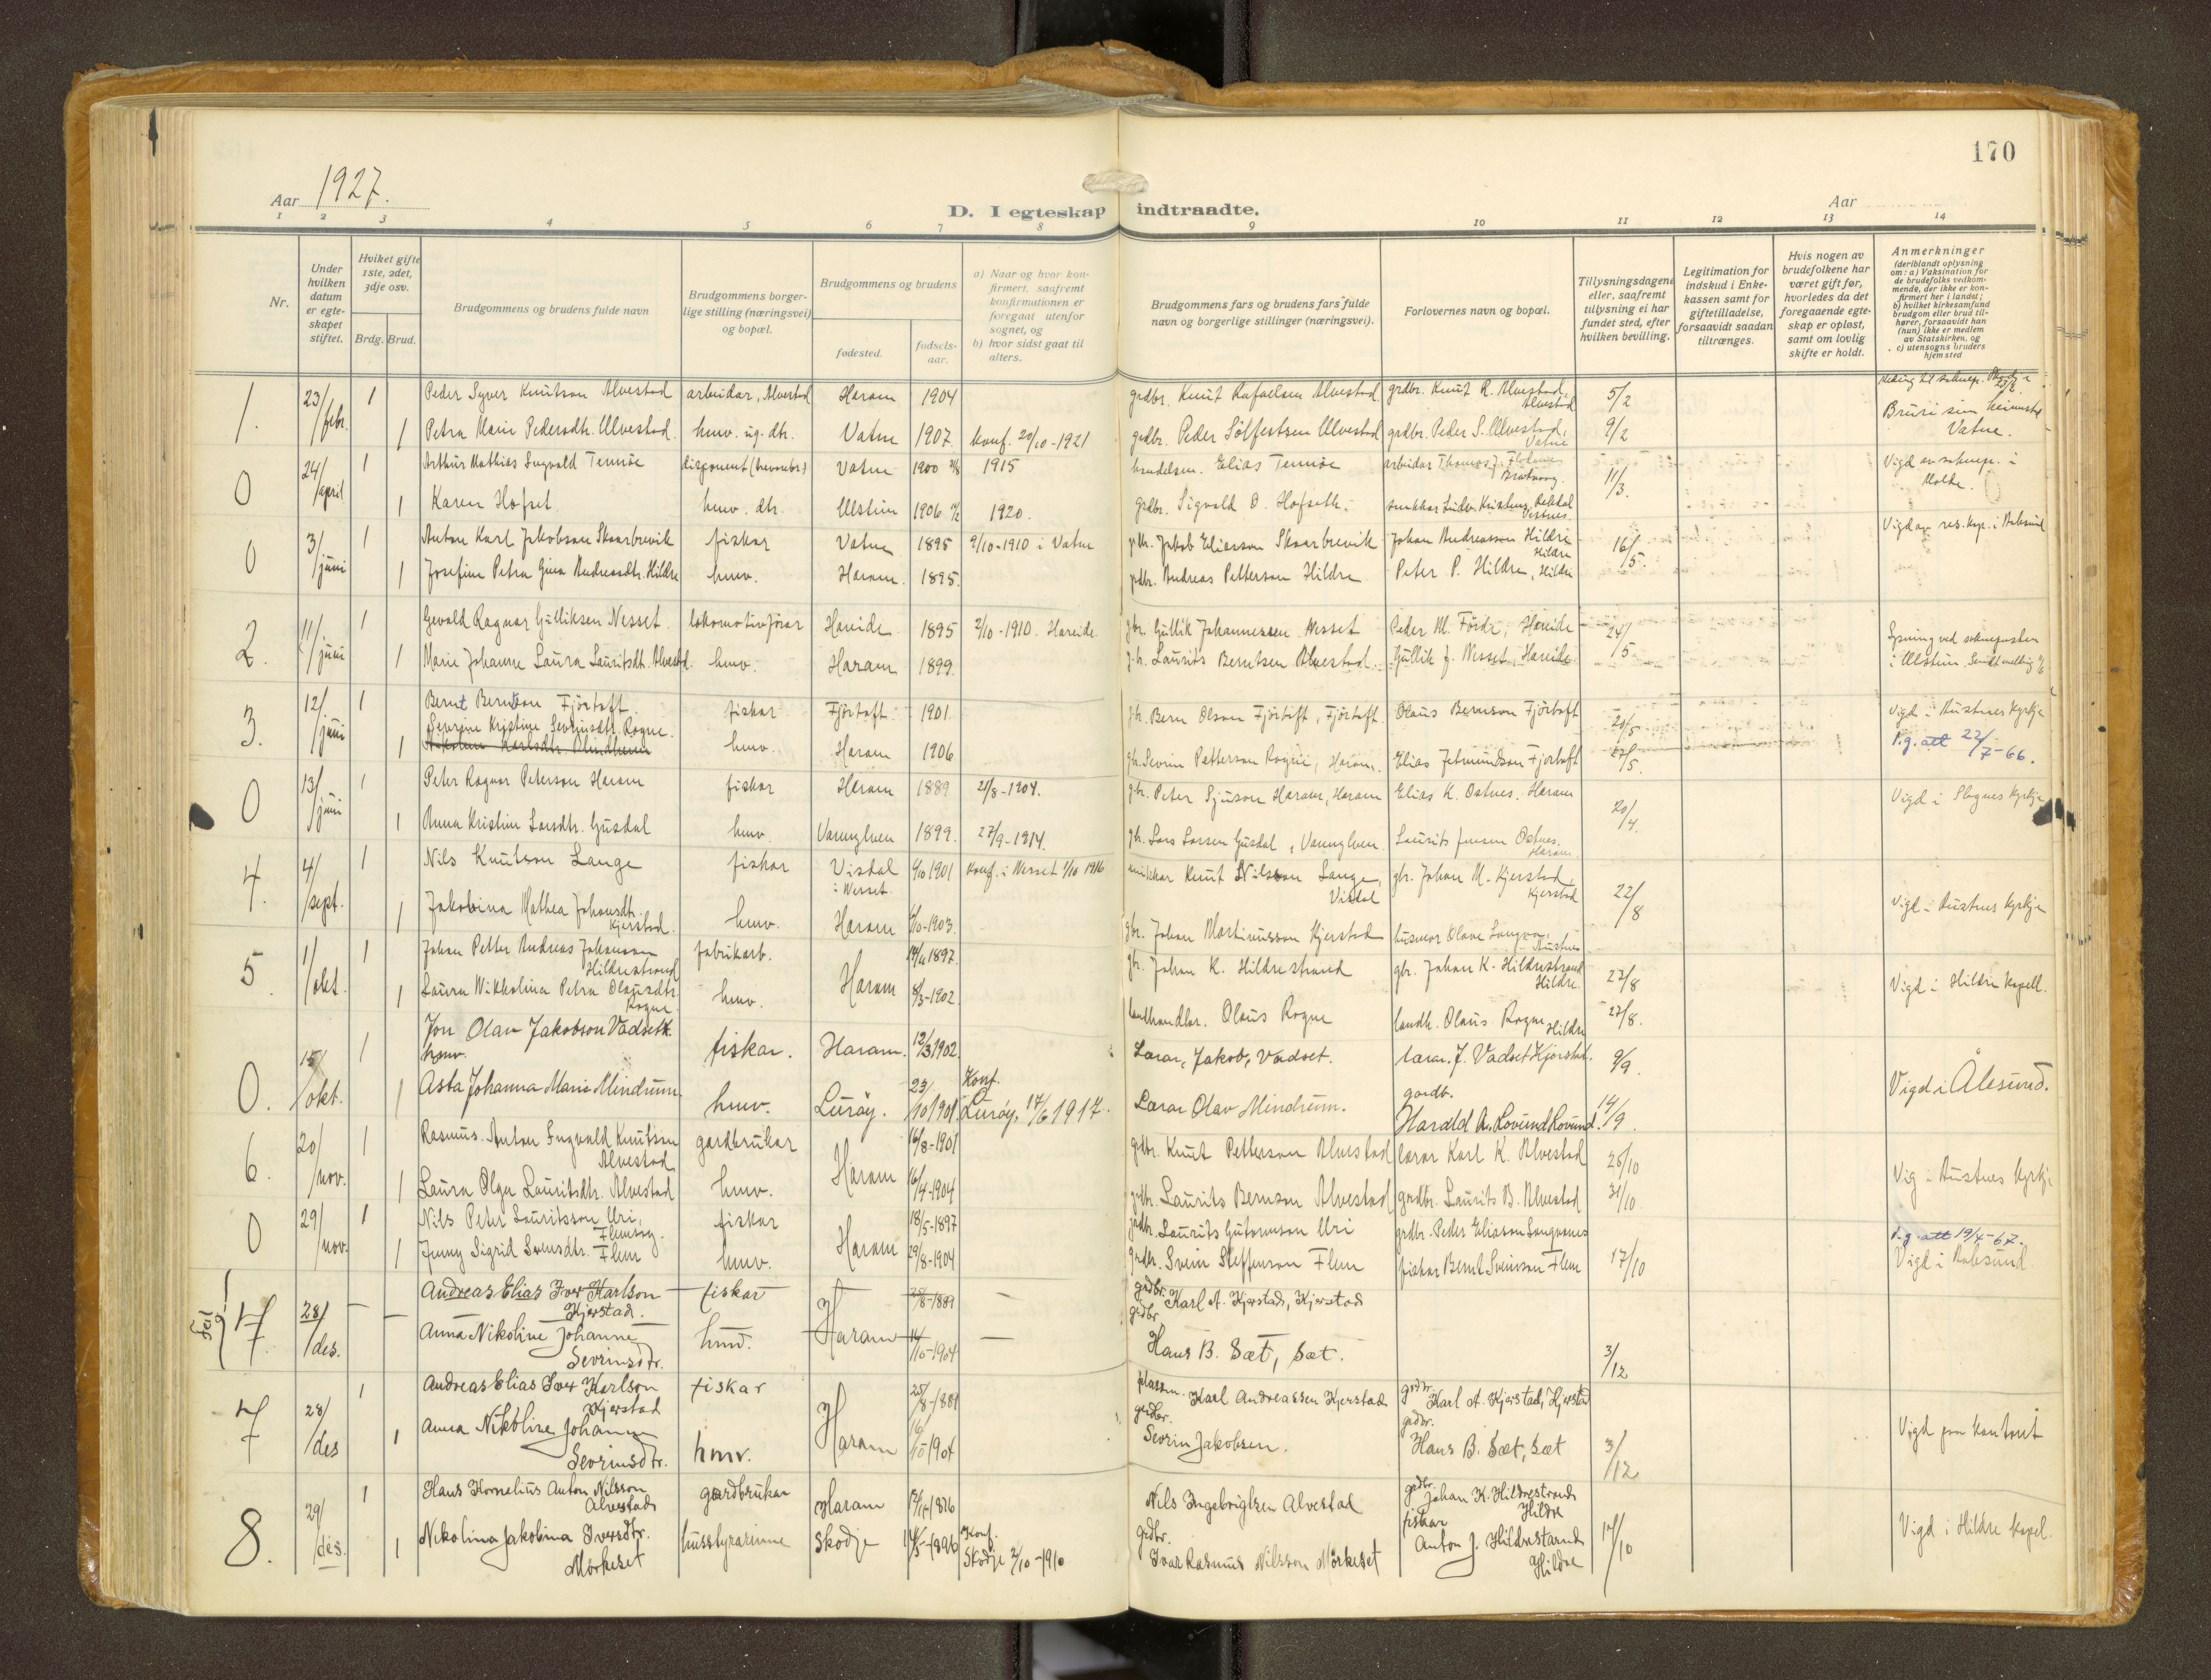 170
Aar 1927.
Aar
D. I egteskap indtraadte.
1 2 3 4 5 6 7 8 9 10 11 12 13 14
Nr.
Under hvilken datum er egteskapet stiftet.
Hviket gifte 1ste, 2det, 3dje osv.
Brdg. Brud.
Brudgommens og brudens fulde navn
Brudgommens borgerlige stilling (næringsvei) og bopæl.
Brudgommens og brudens
fødested.
fødselsaar.
a) Naar og hvor konfirmert, saafremt konfirmationen er foregaat utenfor sognet, og
b) hvor sidst gaat til alters.
Brudgommens fars og brudens fars fulde navn og borgerlige stillinger (næringsvei).
Forlovernes navn og bopæl.
Tillysningsdagene eller, saafremt tillysning ei har fundet sted, efter hvilken bevilling.
Legitimation for indskud i Enkekassen samt for giftetilladelse, forsaavidt saadan tiltrænges.
Hvis nogen av brudefolkene har været gift før, hvorledes da det foregaaende egteskap er opløst, samt om lovlig skifte er holdt.
Anmerkninger
(deriblandt oplysning om: a) Vaksination for de brudefolks vedkommende, der ikke er konfirmert her i landet; b) hvilket kirkesamfund brudgom eller brud tilhører, forsaavidt han (hun) ikke er medlem av Statskirken, og c) utensogns bruders hjemsted
1. 23/febr. 1 Peder Syver Knutson Alvestad arbeidar, Alvestad Haram 1904 grdbr. Knut Rafaelsen Alvestad grdbr. Knut R. Alvestad, Alvestad 5/2
1 Petra Marie Pedersdtr. Ulvestad. hmv. ug. dtr. Vatne 1907. konf. 20/10-1921 grdbr. Peder Sølfestsen Ulvestad grdbr. Peder S. Ulvestad, Vatne 9/2 Bruri sin heimstad Vatne.
0 24/april 1 Arthur Mathias Ingvald Tennøe disponent Vatne 1900 1915 Elias Tennøe arbeidar Thomas J. 11/3. Vigd av soknepr. i Molde.
1 Karen Hofset. hmv. dtr. Ulstein 1906 1920. grdbr. Sigvald O. Hofseth.
0 3/juni 1 Anton Karl Jakobson Skaarbrevik fiskar Vatne 1895 9/10-1910 i Vatne Jakob Eliasson Skaarbrevik Johan Andreasson Hildre Hildre 16/5. Vigd av res. kap. i Aalesund
1 Josefine Petra Gina Andreasdtr. Hildre hmv. Haram. 1895. grdbr. Andreas Petterson Hildre Peter P. Hildre, Hildre
2. 11/juni 1 Gevald Ragnar Gulliksen Nesset lokomotivførar Hareide 1895 2/10-1910. Hareide. gbr. Gullik Johannessen Nesset Peder M. Førde, Hareide 24/5 Lysning ved soknepresten
1 Marie Johanne Laura Lauritsdtr. Alvestad. hmv. Haram 1899. Laurits Berntsen Alvestad. Gullik J. Nesset, Hareide i Ulstein.
3. 12/juni 1 Bernt Berntson Fjörtoft. fiskar Fjörtoft 1901 gbr. Bern Olson Fjörtoft, Fjörtoft Olaus Bernson Fjörtoft 20/5 Vigd i Austnes kyrkje
1 Severine Kristine Sevrinsdtr. Rogne. hmv. Haram 1906 gbr. Sevrin Petterson Rogne, Haram. Elias Jetmundson Fjortoft 22/5. l.g. att 22/7-66.
0 13/juni 1 Peter Ragnar Peterson Haram fiskar Haram 1889 21/8-1904. gbr. Peter Sjuson Haram, Haram Elias K. Ostnes. Haram 20/4. Vigd i Slognes kyrkje
1 Anna Kristine Larsdtr. Gusdal hmv. Vannylven 1899. 27/9-1914. gbr. Lars Larsen Gusdal, Vannylven. Laurits Jensen Ostnes. Haram.
4. 4/sept. 1 Nils Knutson Lange fiskar Visdal i Nesset. 1901 konf. i Nesset 1/10 1916 Knut Nilsson Lange, Visdal gbr. Johan M. Kjerstad, Kjerstad 22/8 Vigd i Austnes kyrkje
1 Jakobina Mathea Johansdtr. Kjerstad. hmv. Haram 1903. gbr. Johan Martinusson Kjerstad
5. 1/okt. 1 Johan Petter Andreas Johanson Hildrestrand fabrikarb. Haram 1897. gbr. Johan K. Hildrestrand gbr. Johan K. Hildrestrand Hildre. 27/8 Vigd i Hildre kapell.
1 Laura Nikkolina Petra Olausdtr. Rogne. hmv. 8/3-1902 landhandlar. Olaus Rogne landh. Olaus Rogne Hildre 27/8.
0. 15/okt. 1 Jon Olav Jakobson Vadseth. fiskar. Haram. 12/3 1902. Lærar, Jakob, Vadset. lærar. J. Vadset Kjerstad. 9/9. Vigd i Ålesund.
hmv.
1 Asta Johanna Marie Mindrum hmv. Lurøy. 23/10 1901 Konf. Lurøy, 17/6 1917. Lærar Olav Mindrum. gardb. Harald A. Lovund Lovund. 14/9.
6. 20/nov. 1 Rasmus Anton Ingvald Knutsen Alvestad gardbrukar Haram 16/8-1901 grdbr. Knut Petterson Alvestad lærar Karl K. Alvestad 25/10 Vig i Austnes kyrkje
1 Laura Olga Lauritsdtr. Alvestad hmv. 16/4-1904 grdbr. Laurits Bernson Alvestad grdbr. Laurits B. Alvestad 31/10.
0 29/nov. 1 Nils Peter Lauritsson Uri, fiskar Haram 18/5-1897 grdbr. Laurits Gutormson Uri grdbr. Peder Eliason Longvanes l.g. att 19/4-67.
1 Jenny Sigrid Svensdtr. Flem hmv. 29/8-1904 grdbr. Svein Steffenson Flem fiskar Bernt Sveinson Flem 17/10 Vigd i Aalesund.
Feil 7. 28/des. Andreas Elias Iver Karlson Kjerstad. fiskar Haram 25/8-1889 grdbr. Karl A. Kjerstad, Kjerstad
Anna Nikoline Johanne Sevrinsdtr. hmv. 14/10-1904 grdbr. Hans B. Sæt, Sæt. 3/12
7 28/des 1 Andreas Elias Iver Karlson Kjerstad fiskar Haram 25/8-1889 plassm. Karl Andreassen Kjerstad grdbr. Karl A. Kjerstad, Kjerstad
1 Anna Nikoline Johanne Sevrinsdtr. hmv. 1904 grdbr. Sevrin Jakobsen. grdbr. Hans B. Sæt, Sæt 3/12 Vigd paa kontoret
8. 29/des. 1 Hans Kornelius Anton Nilsson Alvestad gardbrukar Haram 1876 Nils Ingebrigtsen Alvestad grdbr. Johan K. Hildrestrand Hildre
1 Nikolina Jakobina Iversdtr. Mørkeset husstyrarinne Skodje 1896 Konf. Skodje 2/10-1910 grdbr. Ivar Rasmus Nilsson Mørkeset fiskar Anton J. Hildrestrand Hildre 17/10 Vigd i Hildre kapel.